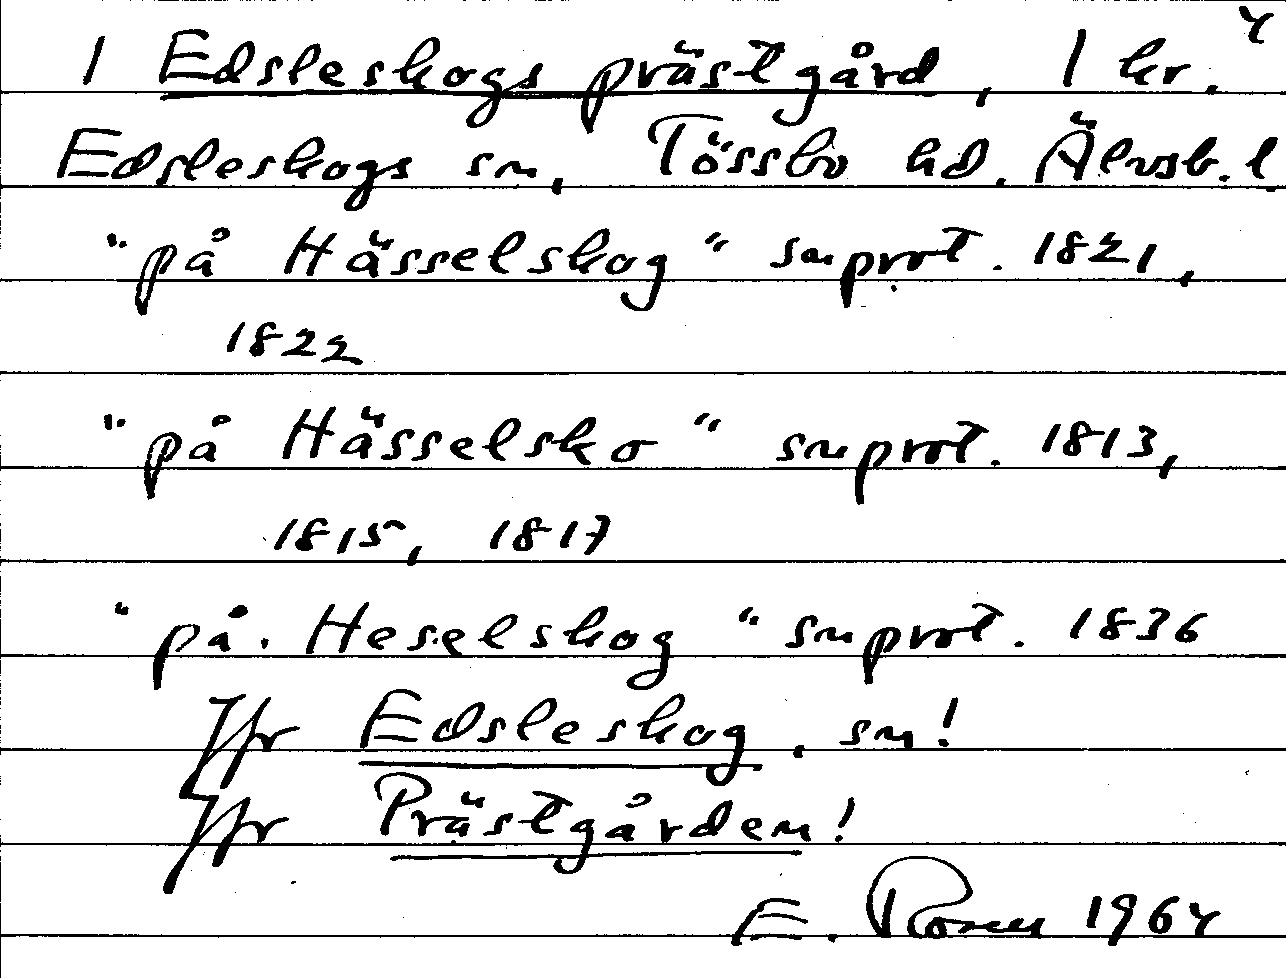 4
1 Edsleskogs prästgård, 1 kr.
Edsleskogs sn, Tössbo hd. Älvsb. l
"på Hässelskog" snprot. 1821,
1822
"på Hässelsko" snprot. 1813,
1815, 1817
"på Heselskog" snprot. 1836
Jfr Edsleskog, sn!
Jfr Prästgården!
E. Rosell 1964